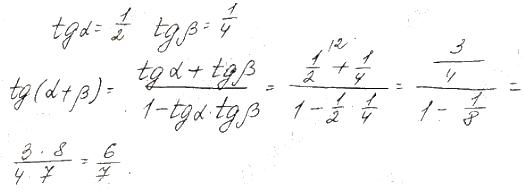 tgα = 1/2 tgβ = 1/4
tg(α+β) = (tgα + tgβ)/(1 - tgα·tgβ) = (1/2 + 1/4)/(1 - 1/2 · 1/4) = (3/4)/(1 - 1/8) =
(3·8)/(4·7) = 6/7.